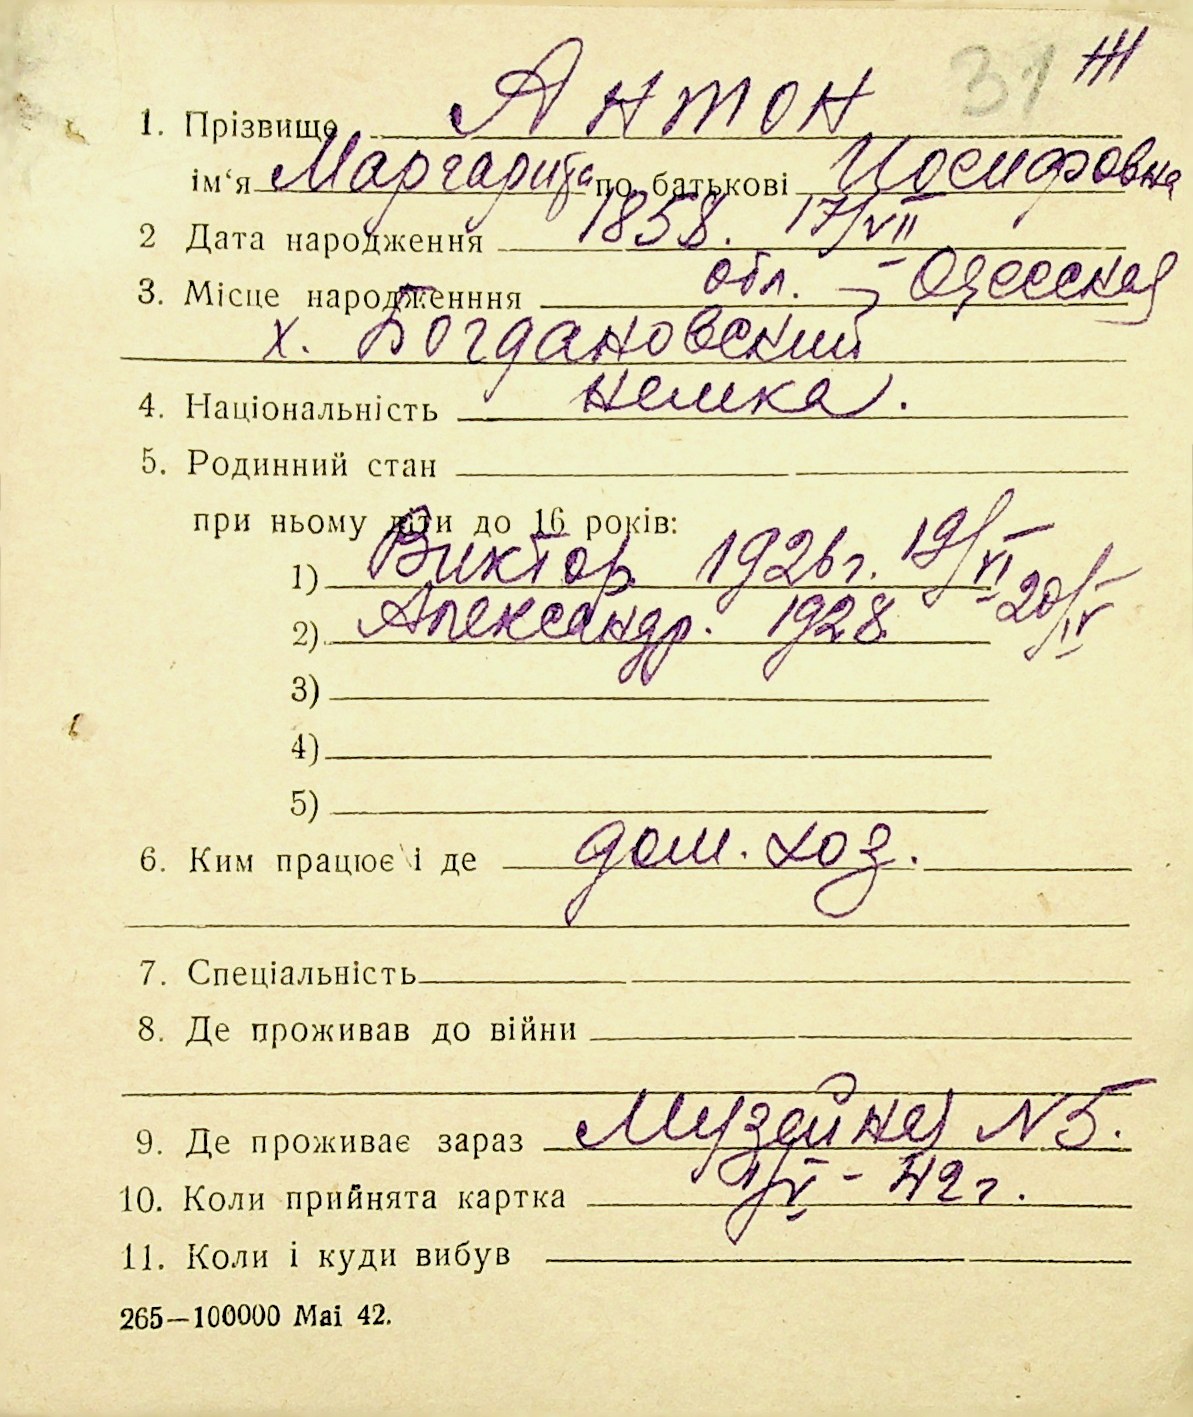 31 ІІІ
1. Прізвище Антон
ім‘я Маргарита по батькові Иосифовна
2 Дата народження 1858. 17/VII
3. Місце народженння обл. – Одесская
х. Богдановский
4. Національність немка.
5. Родинний стан
при ньому діти до 16 років:
1) Виктор 1926 г. 19/VI
2) Александр. 1928. 20/IV
3)
4)
5)
6. Ким працює і де дом. хоз.
7. Спеціальність
8. Де проживав до війни
9. Де проживає зараз Музейная N 5.
10. Коли прийнята картка /V – 42 г.
11. Коли і куди вибув
265—100000 Mai 42.